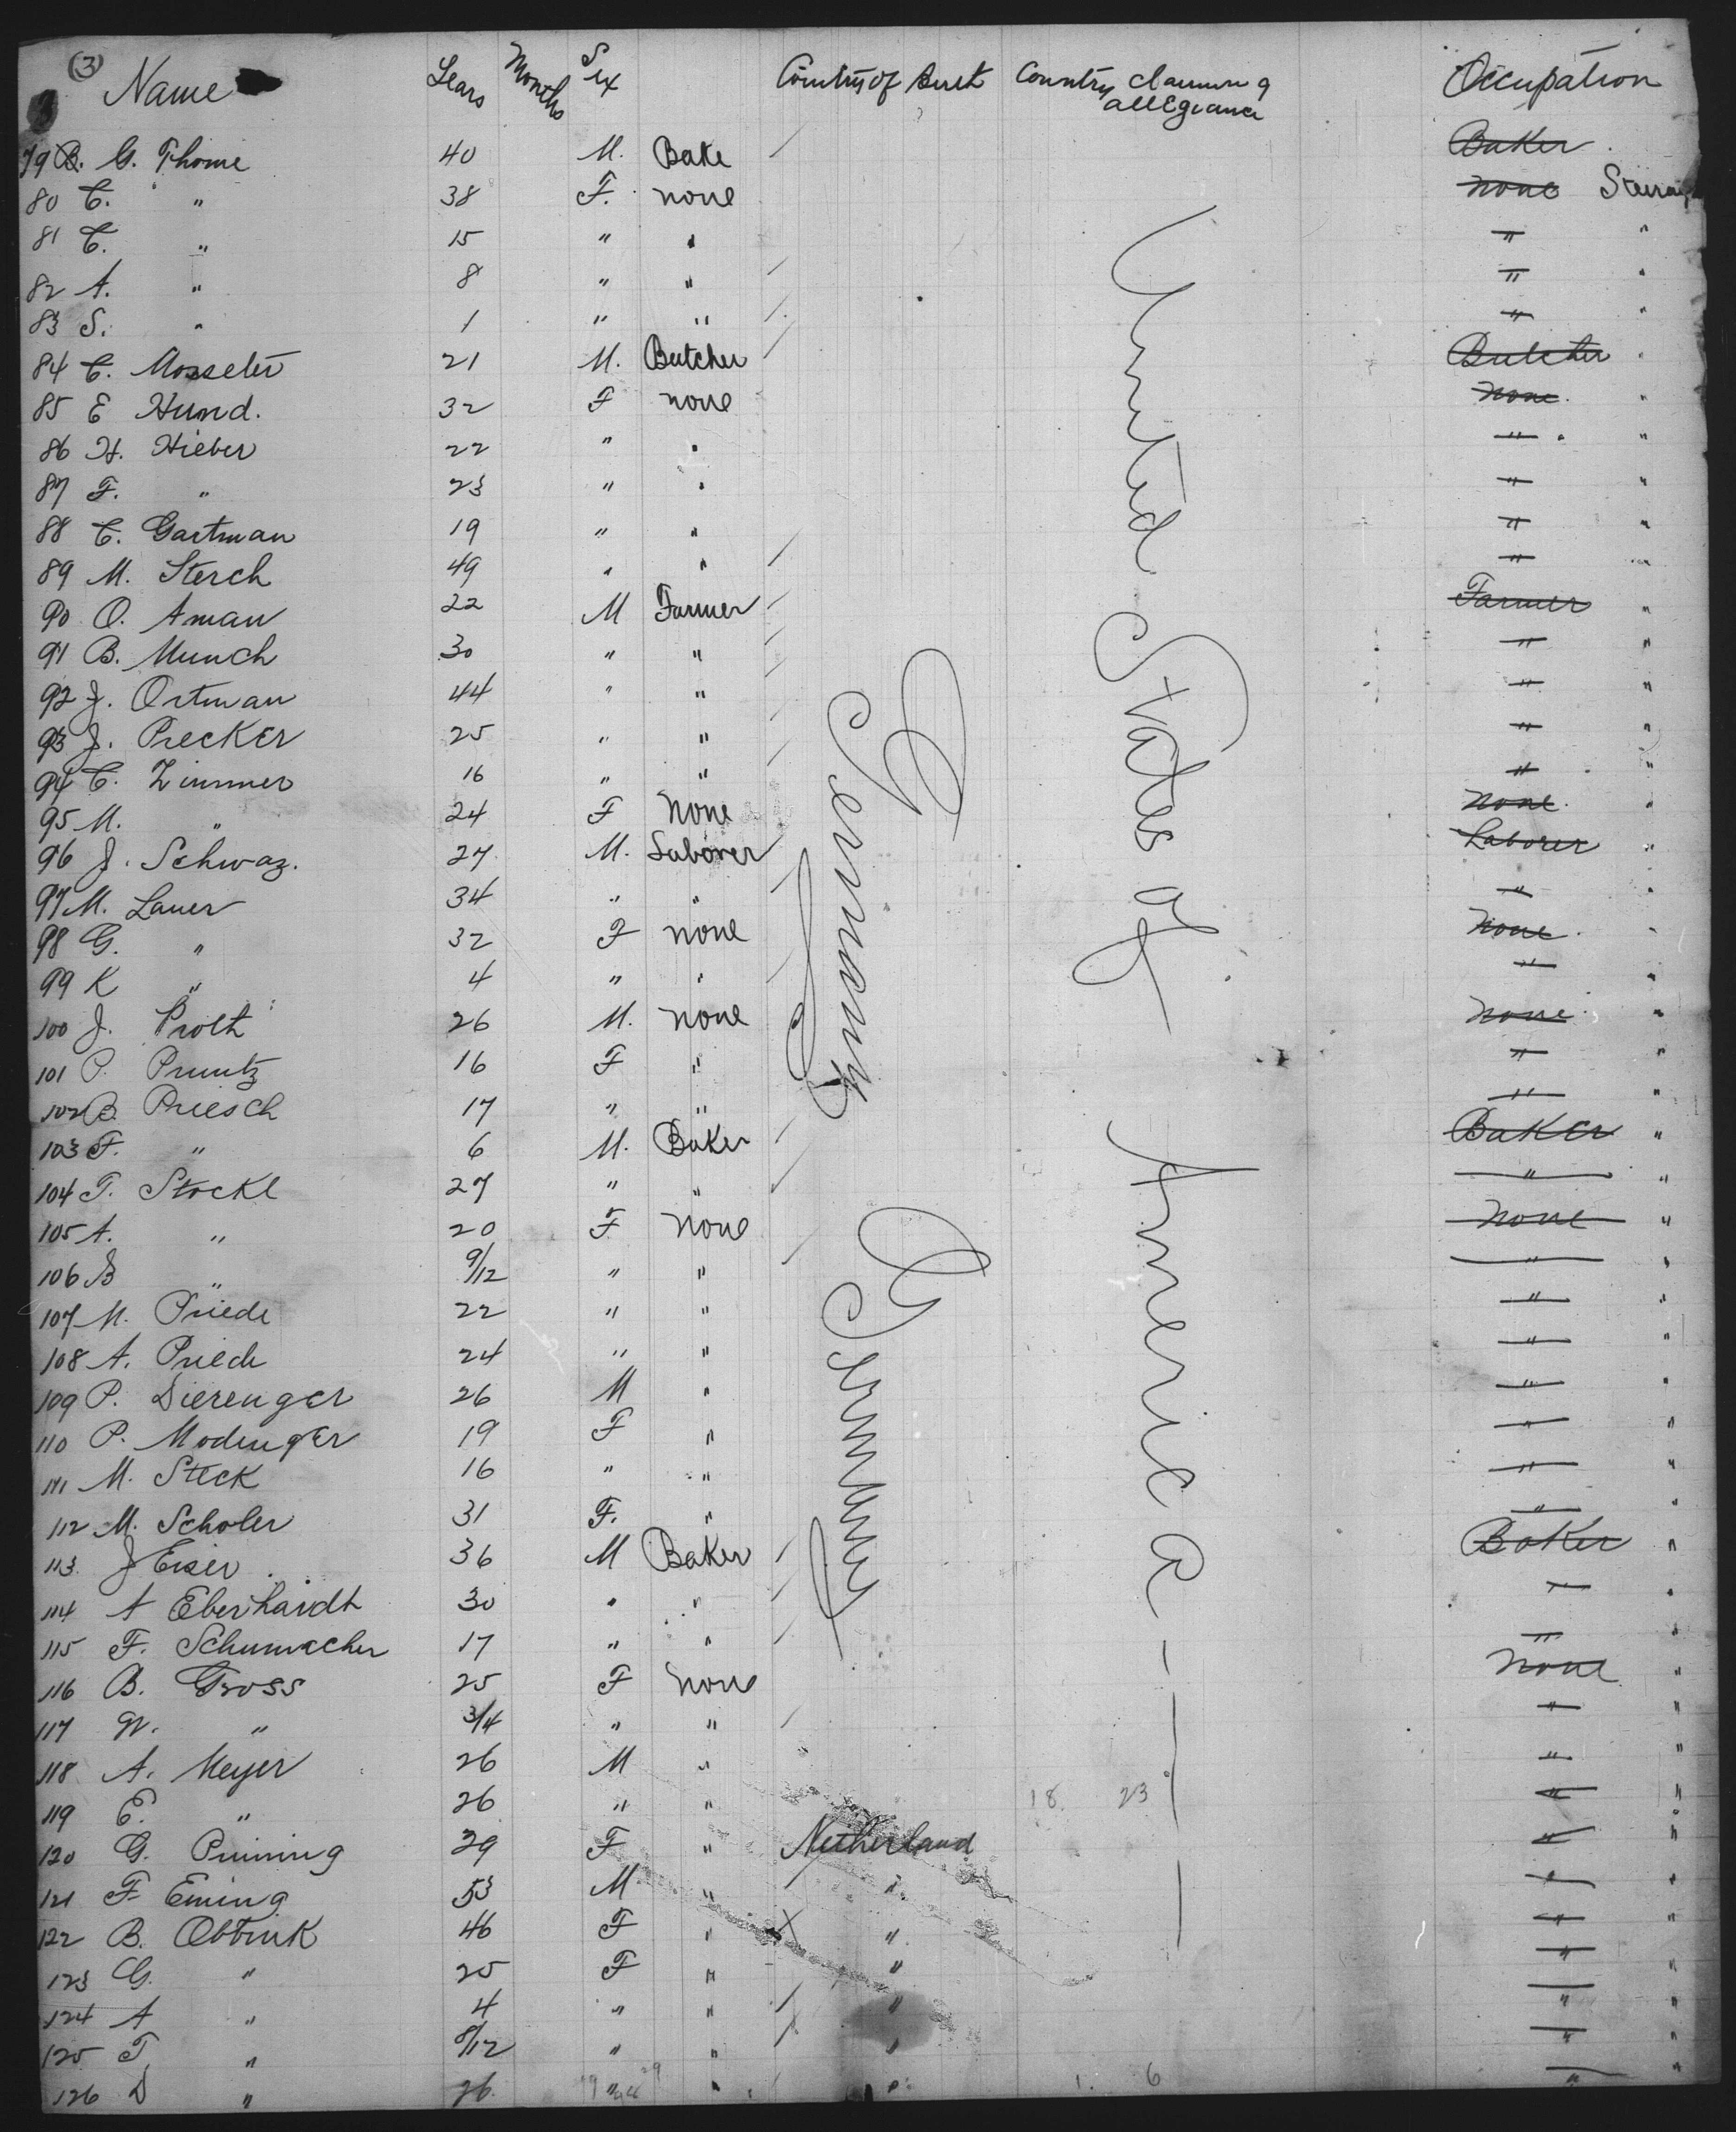 (3) Name Years Months Sex Country of Birth Country claiming allegiance Occupation
79 B. G. Thome 40 M. Bake Baker
80 C. " 38 F. none none
81 C. " 15 " " " "
82 A. " 8 " " " "
83 S. " 1 " " " "
84 C. Mosseler 21 M. Butcher Butcher "
85 E Hund. 32 F none None. "
86 H. Hieber 22 " " " "
87 F. " 23 " " " "
88 C. Gartman 19 " " " "
89 M. Sterch 49 " " " "
90 O. Aman 22 M Farmer Farmer "
91 B. Munch 30 " " " "
92 J. Ortman 44 " " " "
93 J. Precker 25 " " " "
94 C. Zimmer 16 " " " "
95 M. " 24 F None None. "
96 J. Schwaz. 27 M. Laborer Laborer "
97 M. Lauer 34 " " " "
98 G. " 32 F none None. "
99 K " 4 " " " "
100 J. Proth 26 M. none None "
101 P. Pruntz 16 F " " "
102 B. Priesch 17 " " " "
103 F. " 6 M. Baker Baker "
104 T. Stockl 27 " " " "
105 A. " 20 F none None "
106 B " 9/12 " " " "
107 M. Priede 22 " " " "
108 A. Priede 24 " " " "
109 P. Dierenger 26 M " " "
110 P. Modenger 19 F " " "
111 M. Steck 16 " " " "
112 M. Scholer 31 F. " " "
113 J Eiser 36 M Baker Baker "
114 A Eberhardt 30 " " " "
115 F. Schumacher 17 " " " "
116 B. Gross 25 F none None "
117 W. " 3/4 " " " "
118 A. Meyer 26 M " " "
119 E. " 26 " " 18. 23 " "
120 G. Prining 29 F " Netherland " "
121 F. Ening 53 M " " " "
122 B. Obbruk 46 F " " " "
123 G. " 25 F " " " "
124 A " 4 " " " " "
125 T " 8/12 " " " " "
126 D " 26. " " " 1. 6 " "
Germany
Germany
United States of America